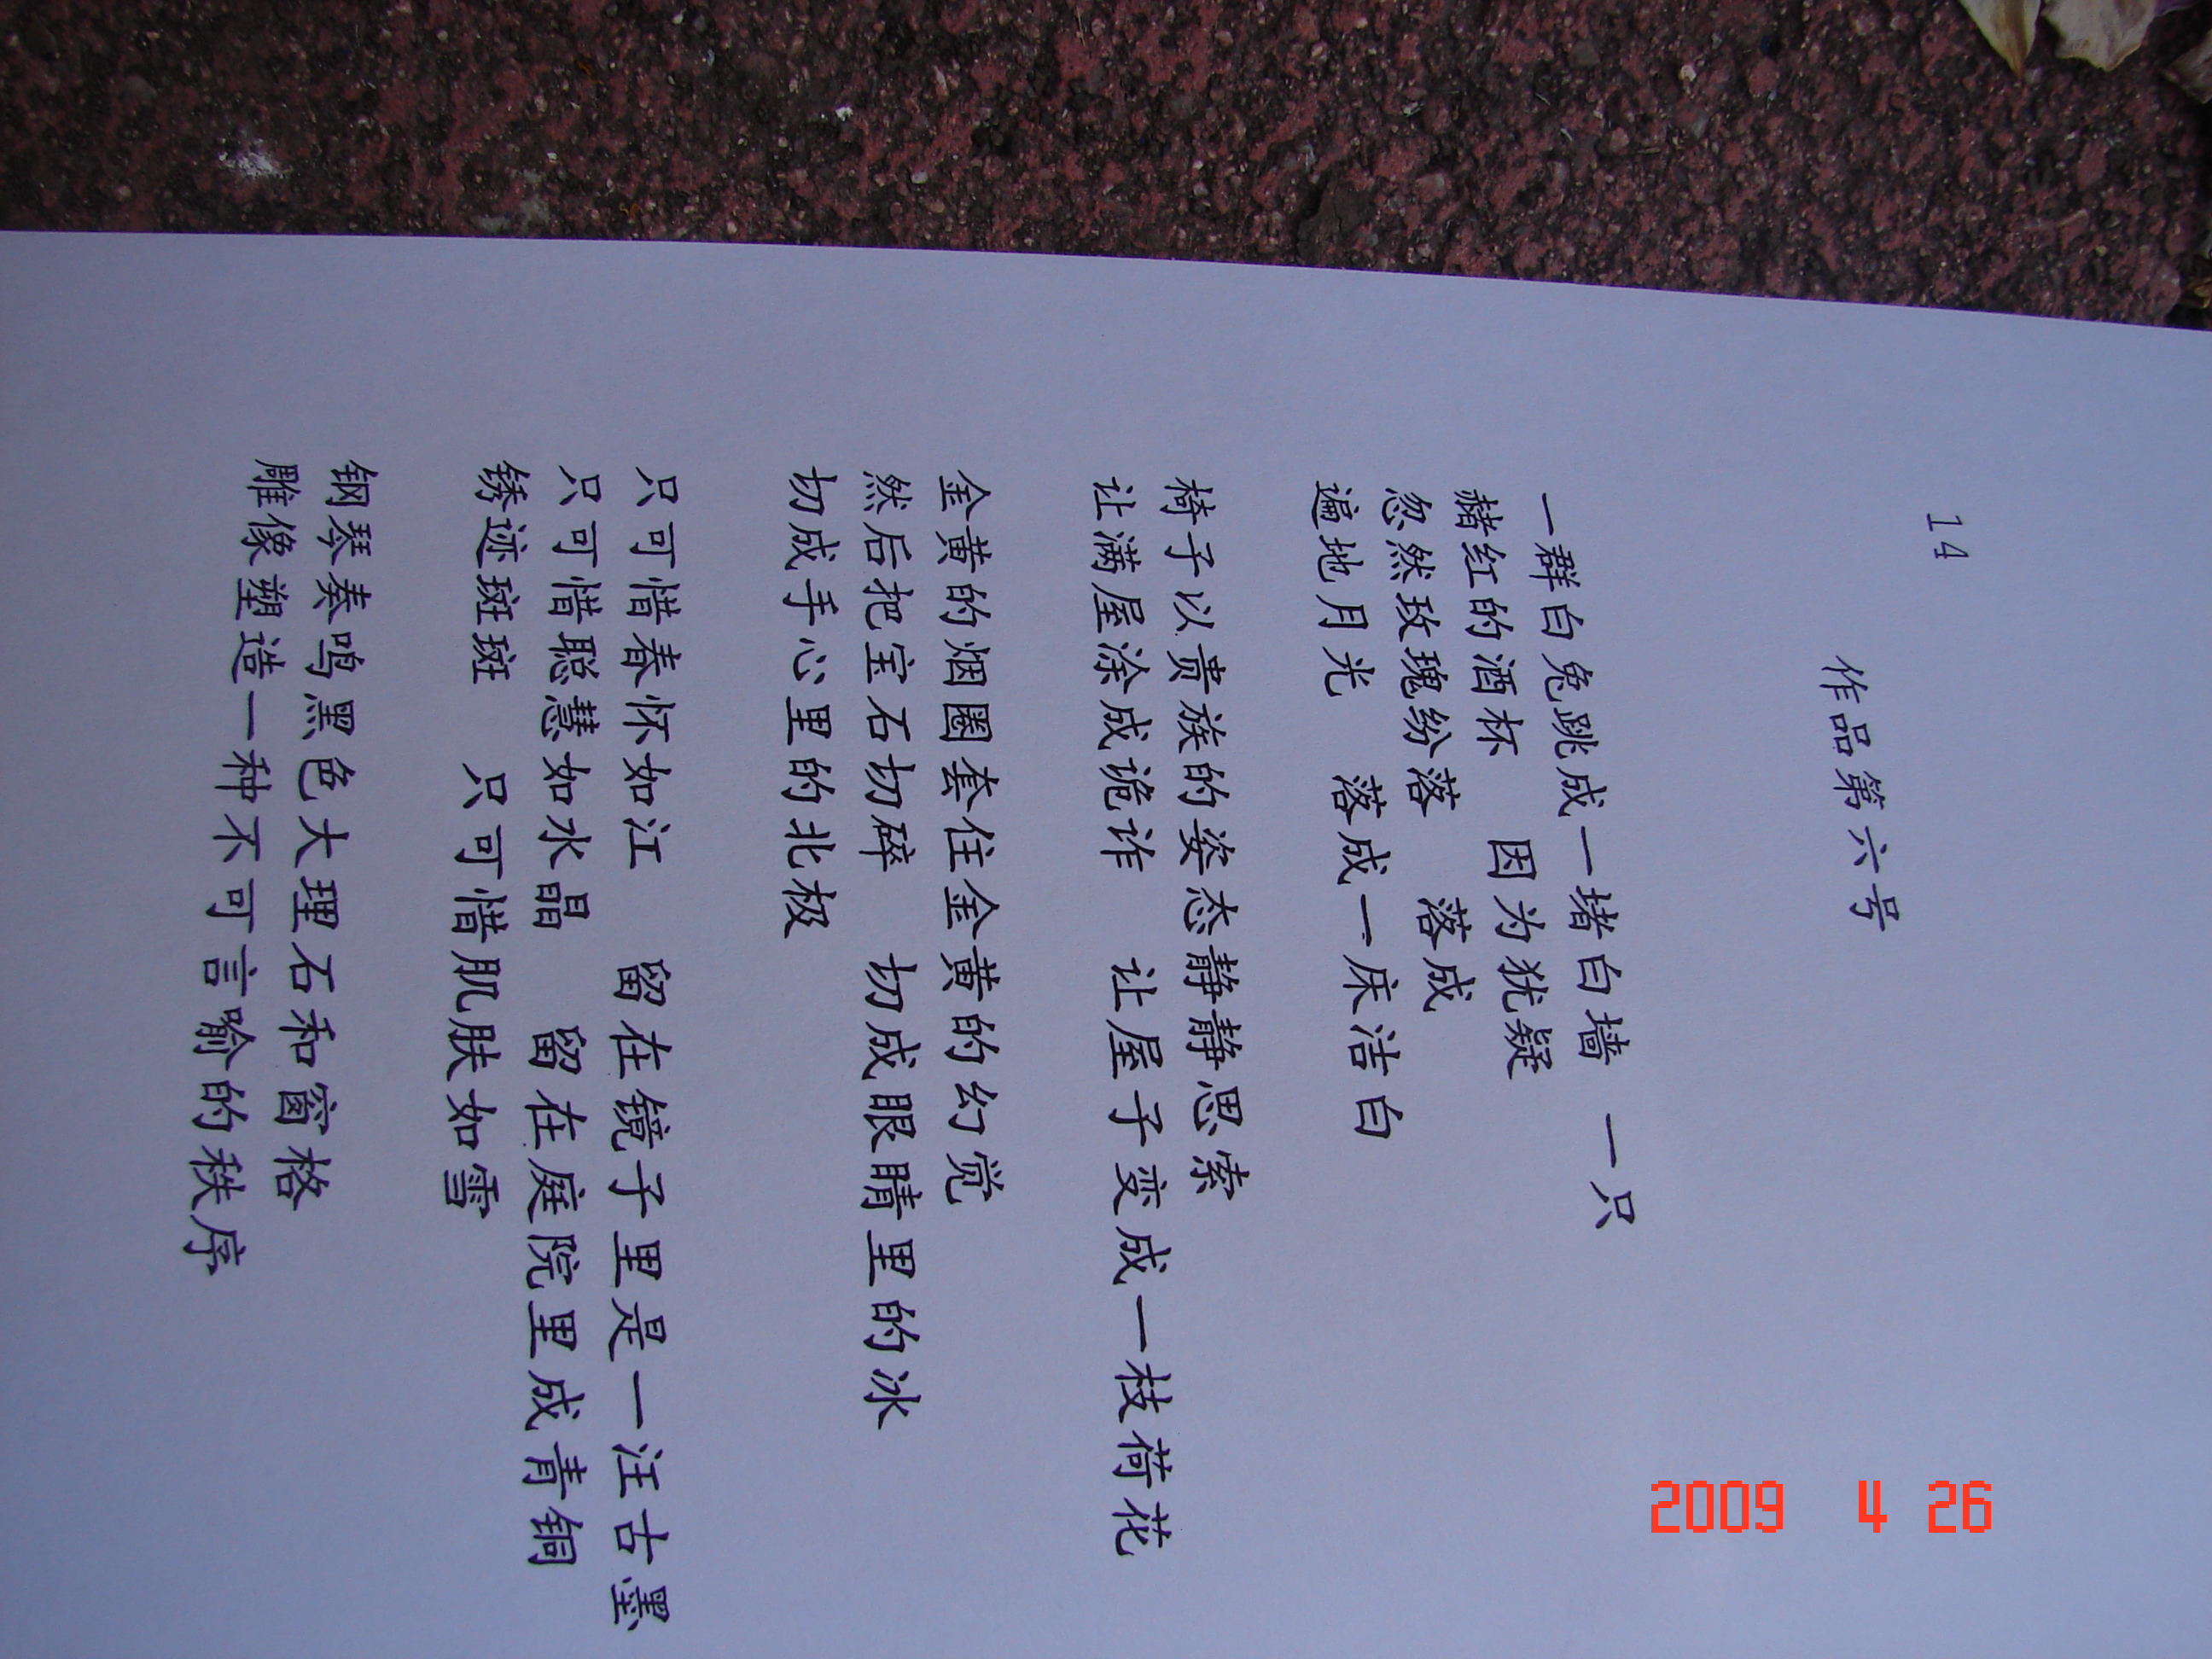 14
作品第六号
一群白兔跳成一堵白墙 一只
赭红的酒杯 因为犹疑
忽然玫瑰纷落 落成
遍地月光 落成一床洁白
椅子以贵族的姿态静静思索
让满屋涂成诡诈 让屋子变成一枝荷花
金黄的烟圈套住金黄的幻觉
然后把宝石切碎 切成眼睛里的冰
切成手心里的北极
只可惜春怀如江 留在镜子里是一汪古墨
只可惜聪慧如水晶 留在庭院里成青铜
锈迹斑斑 只可惜肌肤如雪
钢琴奏鸣黑色大理石和窗格
雕像塑造一种不可言喻的秩序
2009 4 26